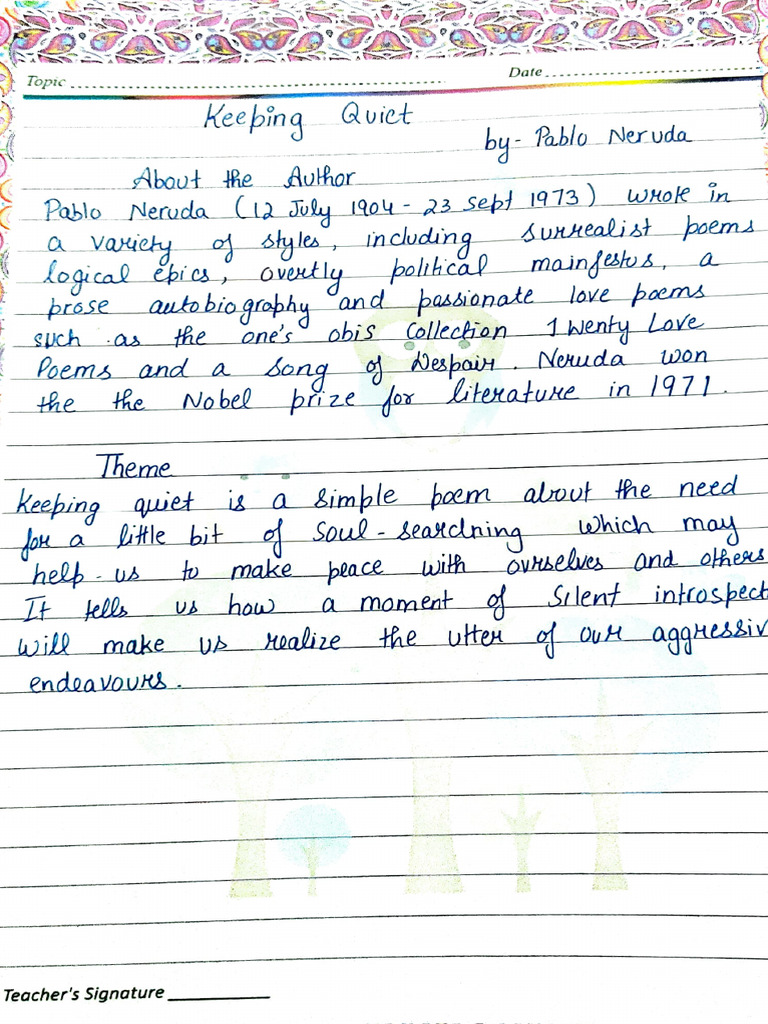 Topic
Date
Keeping Quiet
by- Pablo Neruda
About the Author
Pablo Neruda (12 July 1904 - 23 sept 1973) wrote in
a variety of styles, including surrealist poems
logical epics, overtly political mainfestos, a
prose autobiography and passionate love poems
such as the one's obis collection Twenty Love
Poems and a Song of Despair. Neruda won
the the Nobel prize for literature in 1971.
Theme
Keeping quiet is a simple poem about the need
for a little bit of soul-seardning which may
help-us to make peace with ourselves and others
It tells us how a moment of Silent introspect
will make us realize the utter of our aggressiv
endeavours.
Teacher's Signature